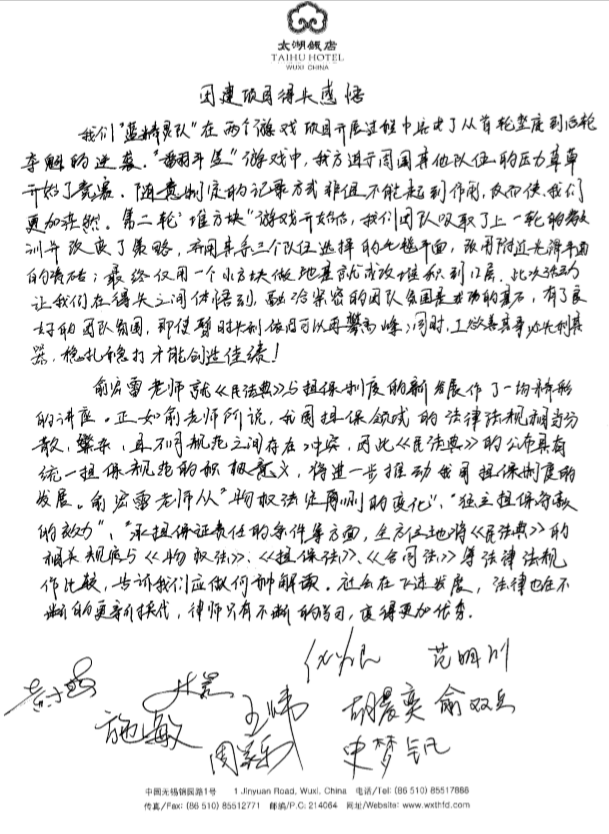 太湖饭店
TAIHU HOTEL
WUXI CHINA
团建项目得失感悟
我们“蓝精灵队”在两个游戏项目开展过程中实现了从首轮垫底到后轮
夺魁的逆袭。“翻斗篮”游戏中，我方迫于周围其他队伍的压力草草
开始了竞赛。随意制度的记录方式非但不能起到作用，反而使我们
更加茫然。第二轮“堆方块”游戏开始后，我们团队吸取了上一轮的教
训并改变了策略，有别其余三个队伍选择的地毯平面，改用附近光滑平面
的瓷砖；最终仅用一个小方块做地基就成功堆积到12层。此次活动
让我们在得失之间体悟到，融洽紧密的团队氛围是成功的基石，有了良
好的团队氛围，即使暂时失利依旧可以再攀高峰；同时，工欲善其事必先利其
器，稳扎稳打才能创造佳绩！
俞宏雷老师就《民法典》与担保制度的新发展作了一场精彩
的讲座。正如俞老师所说，我国担保领域的法律法规相当分
散，繁杂，且不同规范之间存在冲突，因此《民法典》的公布具有
统一担保规范的积极意义，将进一步推动我国担保制度的
发展。俞宏雷老师从“物权法定原则的变化”、“独立担保条款
的效力”、“承担保证责任的条件等方面，全方位地将《民法典》的
相关规定与《物权法》、《担保法》、《合同法》等法律法规
作比较，告诉我们应做何种解读。社会在飞速发展，法律也在不
断的更新换代，律师只有不断的学习，变得更加优秀。
范明川
施敏 王炜 胡晨奕 俞双
周 史梦钒
中国无锡锦园路1号 1 Jinyuan Road, Wuxi, China 电话/Tel: (86 510) 85517888
传真/Fax: (86 510) 85512771 邮编/P.C: 214064 网址/Website: www.wxthfd.com